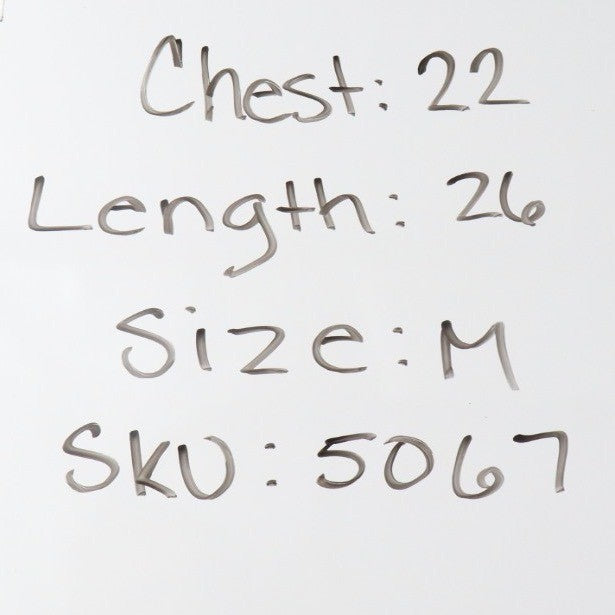 Chest: 22
Length: 26
Size: M
SKU: 5067